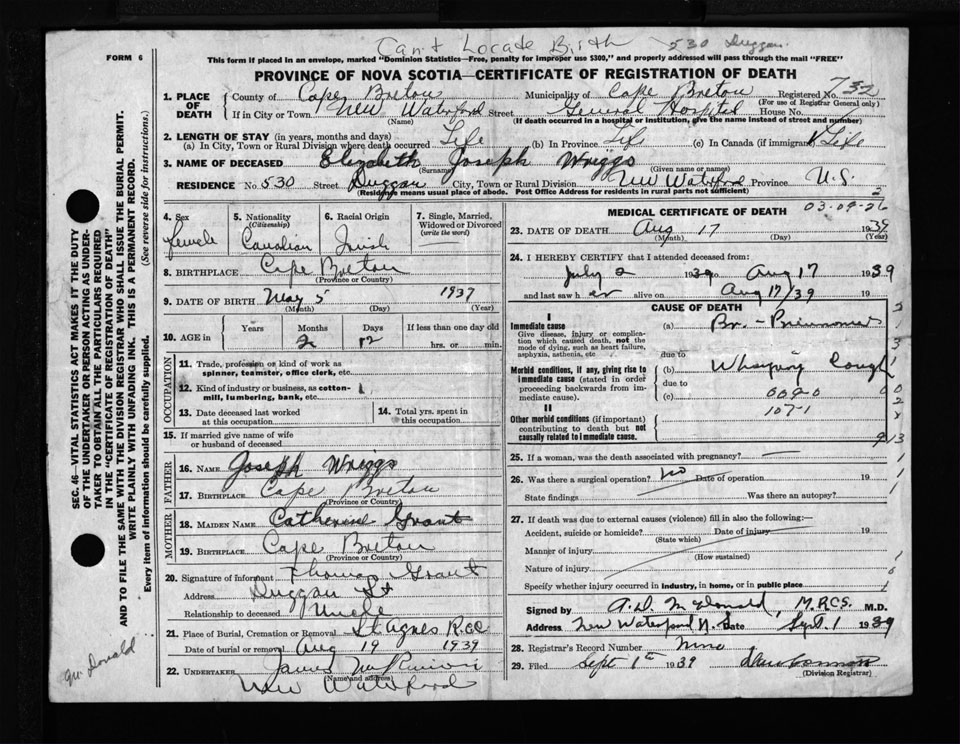 Can't Locate Birth 530 Duggan
FORM 6
This form if placed in an envelope, marked "Dominion Statistics—Free, penalty for improper use $300," and properly addressed will pass through the mail "FREE"
PROVINCE OF NOVA SCOTIA—CERTIFICATE OF REGISTRATION OF DEATH
1. PLACE OF DEATH County of Cape Breton Municipality of Cape Breton Registered No. 732
(For use of Registrar General only)
If in City or Town New Waterford Street General Hospital House No.
(Name) (If death occurred in a hospital or institution, give the name instead of street and number)
2. LENGTH OF STAY (in years, months and days)
(a) In City, Town or Rural Division where death occurred Life (b) In Province Life (c) In Canada (if immigrant) Life
3. NAME OF DECEASED Elizabeth Joseph Wriggs
(Surname) (Given name or names)
RESIDENCE No. 530 Street Duggan City, Town or Rural Division New Waterford Province N.S.
(Residence means usual place of abode. Post Office Address for residents in rural parts not sufficient) 2
4. Sex female
5. Nationality (Citizenship) Canadian
6. Racial Origin Irish
7. Single, Married, Widowed or Divorced (write the word)
8. BIRTHPLACE Cape Breton
(Province or Country)
9. DATE OF BIRTH May 5 1937
(Month) (Day) (Year)
10. AGE in Years Months Days If less than one day old
2 12 hrs. or min.
OCCUPATION
11. Trade, profession or kind of work as spinner, teamster, office clerk, etc.
12. Kind of industry or business, as cotton-mill, lumbering, bank, etc.
13. Date deceased last worked at this occupation
14. Total yrs. spent in this occupation
15. If married give name of wife or husband of deceased
FATHER
16. NAME Joseph Wriggs
17. BIRTHPLACE Cape Breton
(Province or Country)
MOTHER
18. MAIDEN NAME Catherine Grant
19. BIRTHPLACE Cape Breton
(Province or Country)
20. Signature of informant Thomas Grant
Address Duggan St
Relationship to deceased Uncle
21. Place of Burial, Cremation or Removal St Agnes R.C.C
Date of burial or removal Aug 19 1939
22. UNDERTAKER James
(Name and address)
New Waterford
MEDICAL CERTIFICATE OF DEATH 03-09-26
23. DATE OF DEATH Aug 17 1939
(Month) (Day) (Year)
24. I HEREBY CERTIFY that I attended deceased from:
July 2 1939 to Aug 17 1939
and last saw her alive on Aug 17/39 19
CAUSE OF DEATH
I
Immediate cause (a) Br.-Pneumonia
Give disease, injury or complication which caused death, not the mode of dying, such as heart failure, asphyxia, asthenia, etc
due to
Morbid conditions, if any, giving rise to immediate cause (stated in order proceeding backwards from immediate cause). (b) Whooping Cough
due to
(c) 009-0
II
107-1
Other morbid conditions (if important) contributing to death but not causally related to immediate cause.
25. If a woman, was the death associated with pregnancy? —
26. Was there a surgical operation? no Date of operation 19
State findings Was there an autopsy?
27. If death was due to external causes (violence) fill in also the following:—
Accident, suicide or homicide? Date of injury 19
(State which)
Manner of injury
(How sustained)
Nature of injury
Specify whether injury occurred in industry, in home, or in public place
Signed by A.D. McDonald, M.R.C.S. M.D.
Address New Waterford N.S. Date Sept. 1 1939
28. Registrar's Record Number Nine
29. Filed Sept 1st 1939
(Division Registrar)
SEC. 46—VITAL STATISTICS ACT MAKES IT THE DUTY
OF THE UNDERTAKER OR PERSON ACTING AS UNDER-
TAKER TO OBTAIN ALL THE PARTICULARS REQUIRED
IN THE "CERTIFICATE OF REGISTRATION OF DEATH"
AND TO FILE THE SAME WITH THE DIVISION REGISTRAR WHO SHALL ISSUE THE BURIAL PERMIT.
WRITE PLAINLY WITH UNFADING INK. THIS IS A PERMANENT RECORD.
Every item of information should be carefully supplied. (See reverse side for instructions.)